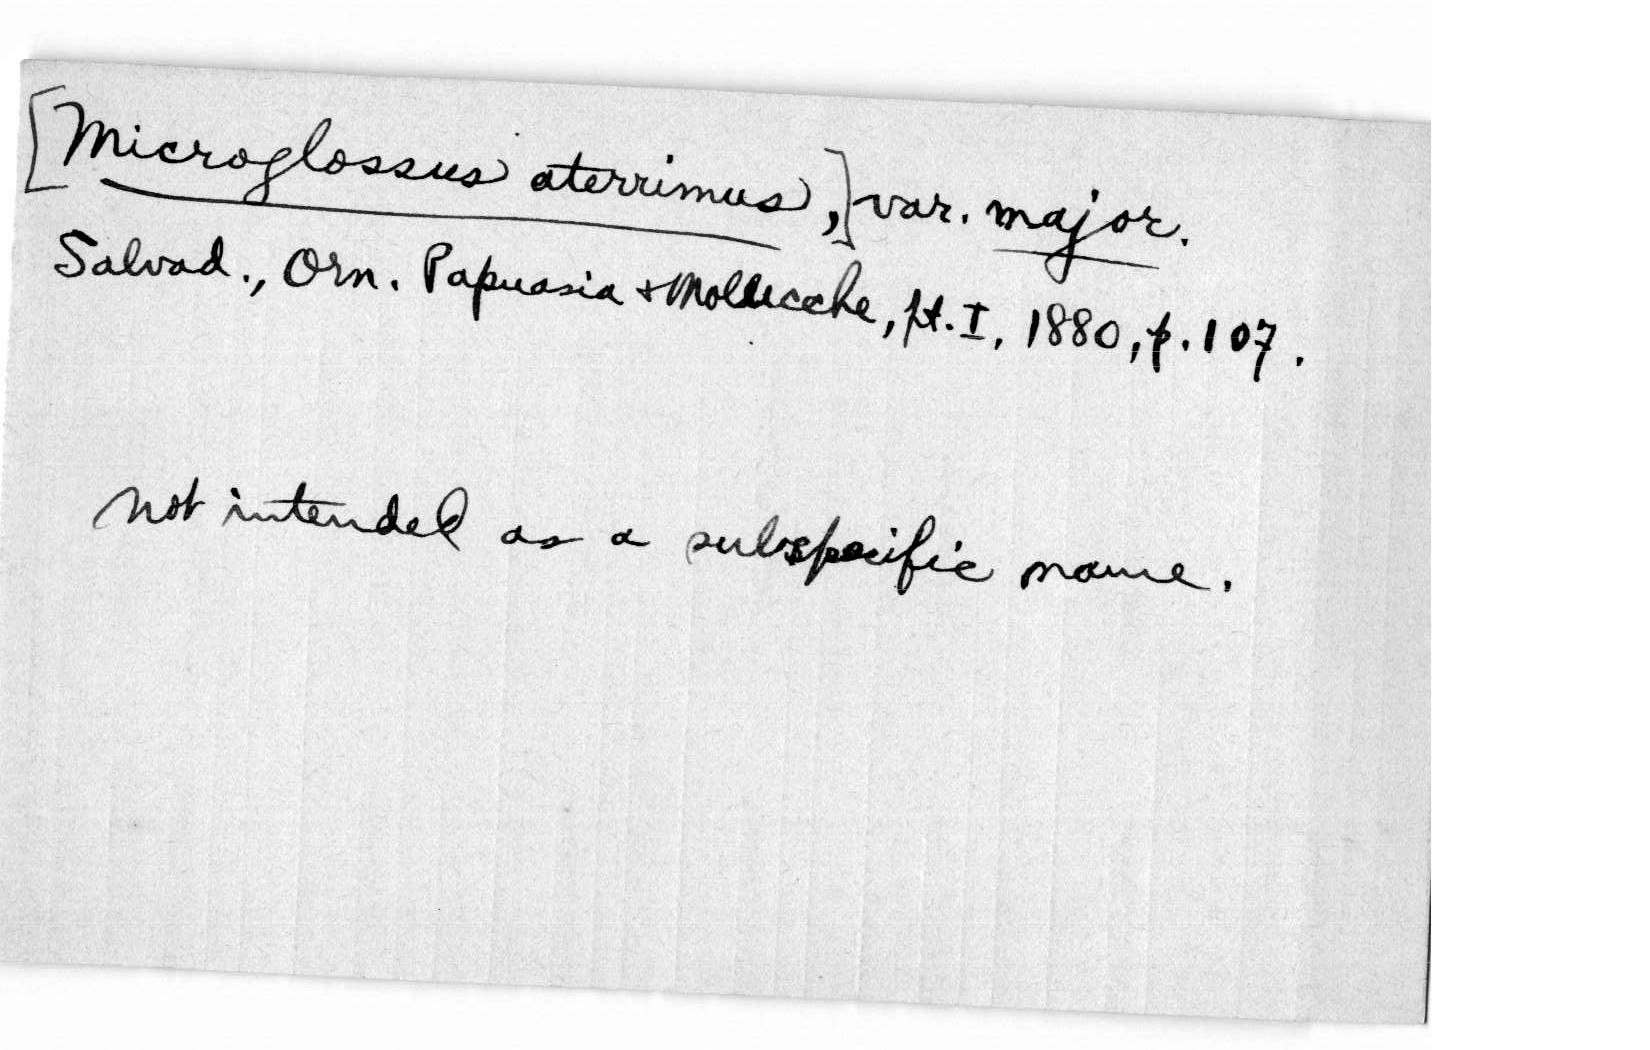 [Microglossus aterrimus,] var. major.
Salvad., Orn. Papuasia & Molucche, pt. I, 1880, p. 107.
not intended as a subspecific name.